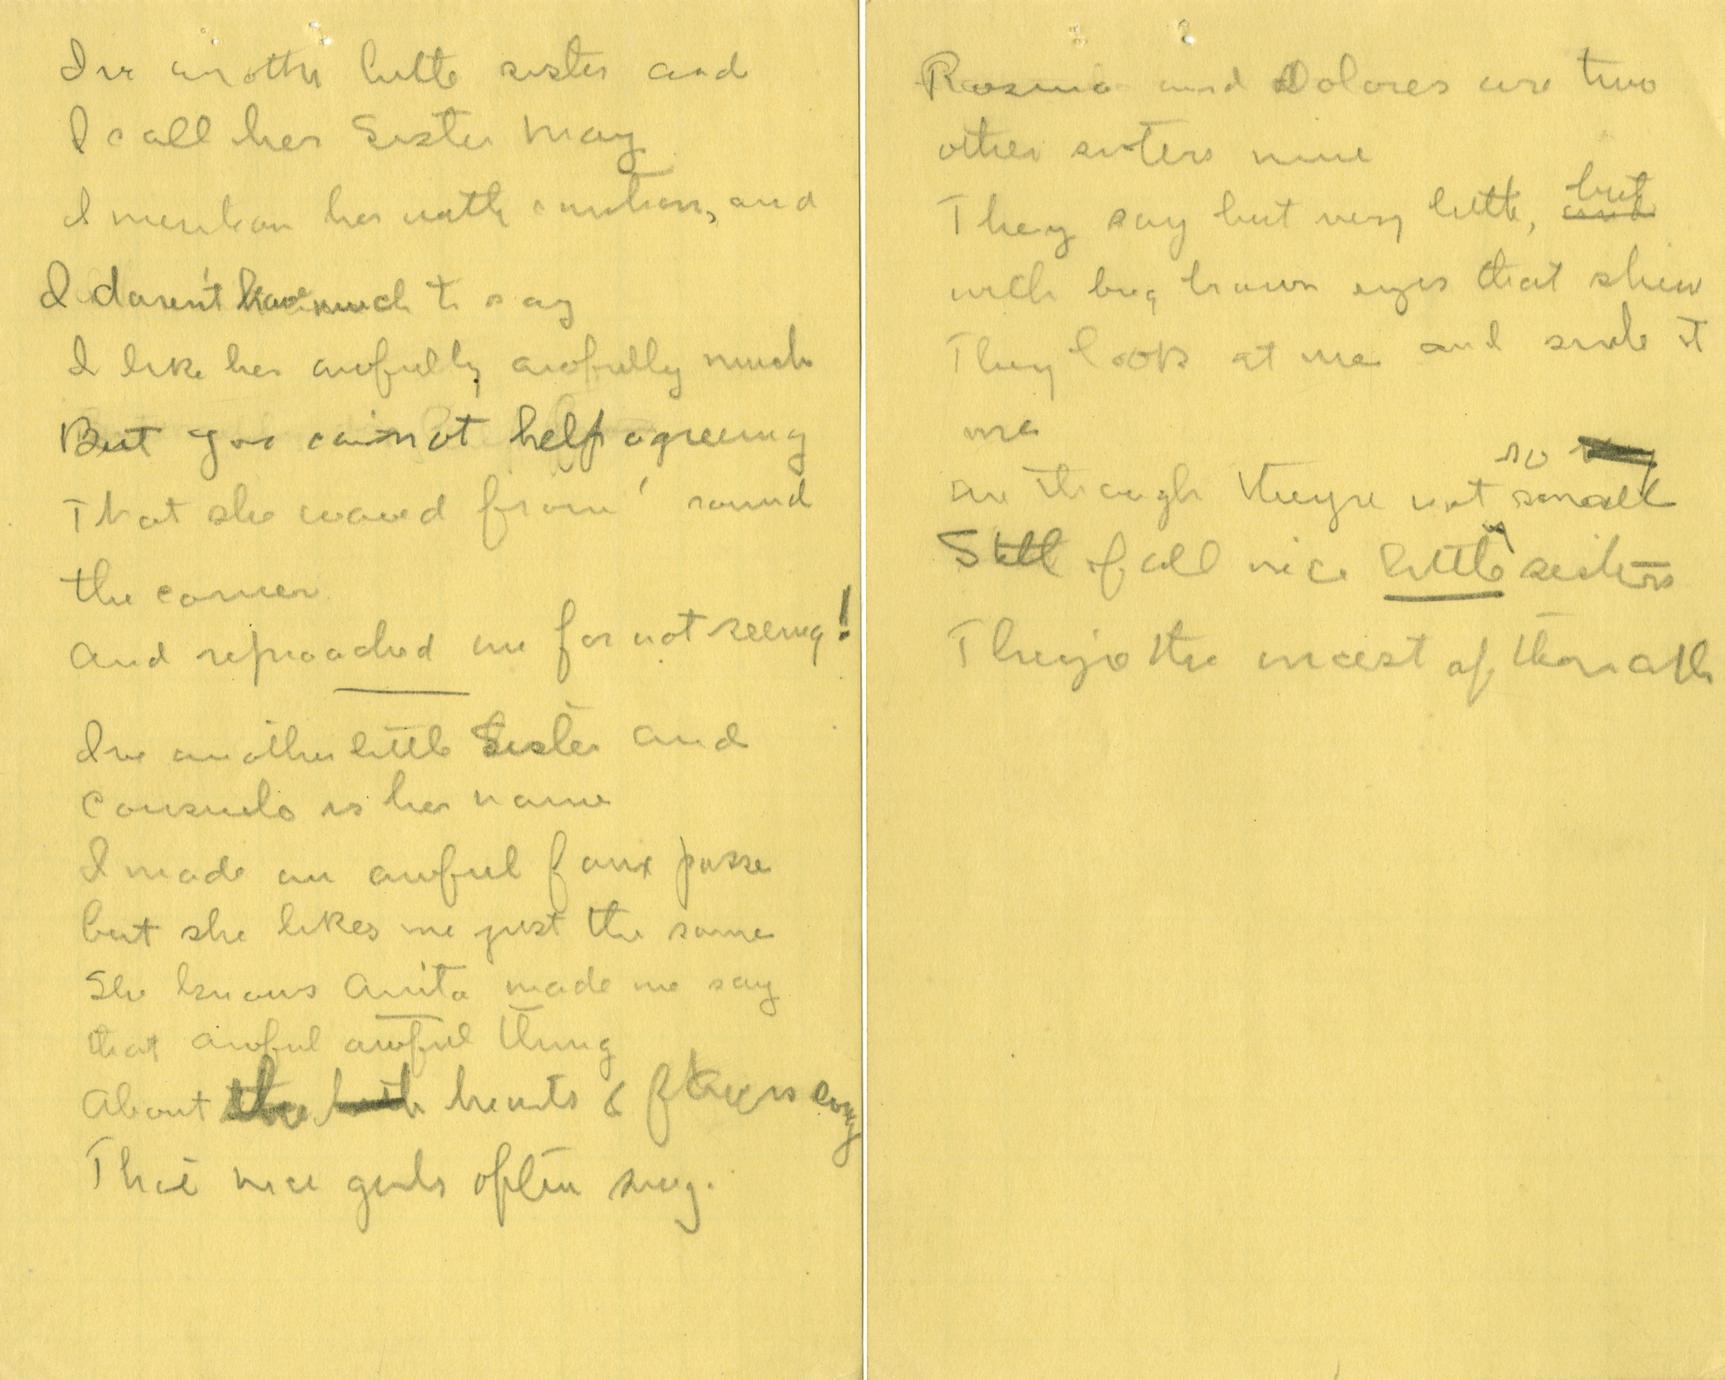 I've another little sister and
I call her Sister May
I mention her with caution, and
I daren't have much to say
I like her awfully awfully much
But you cannot help agreeing
That she waved from 'round
the corner
And reproached me for not seeing!
I've another little Sister and
Consuelo is her name
I made an awful faux passe
but she likes me just the same
She knows Anita made me say
that awful awful thing
About the hearts & flowers song
That nice girls often sing.
Rosina and Dolores are two
other sisters mine
They say but very little, and but
with big brown eyes that shine
They look at me and smile at
me
and though they're not so small
Still of all nice little sisters
They're the nicest of them all